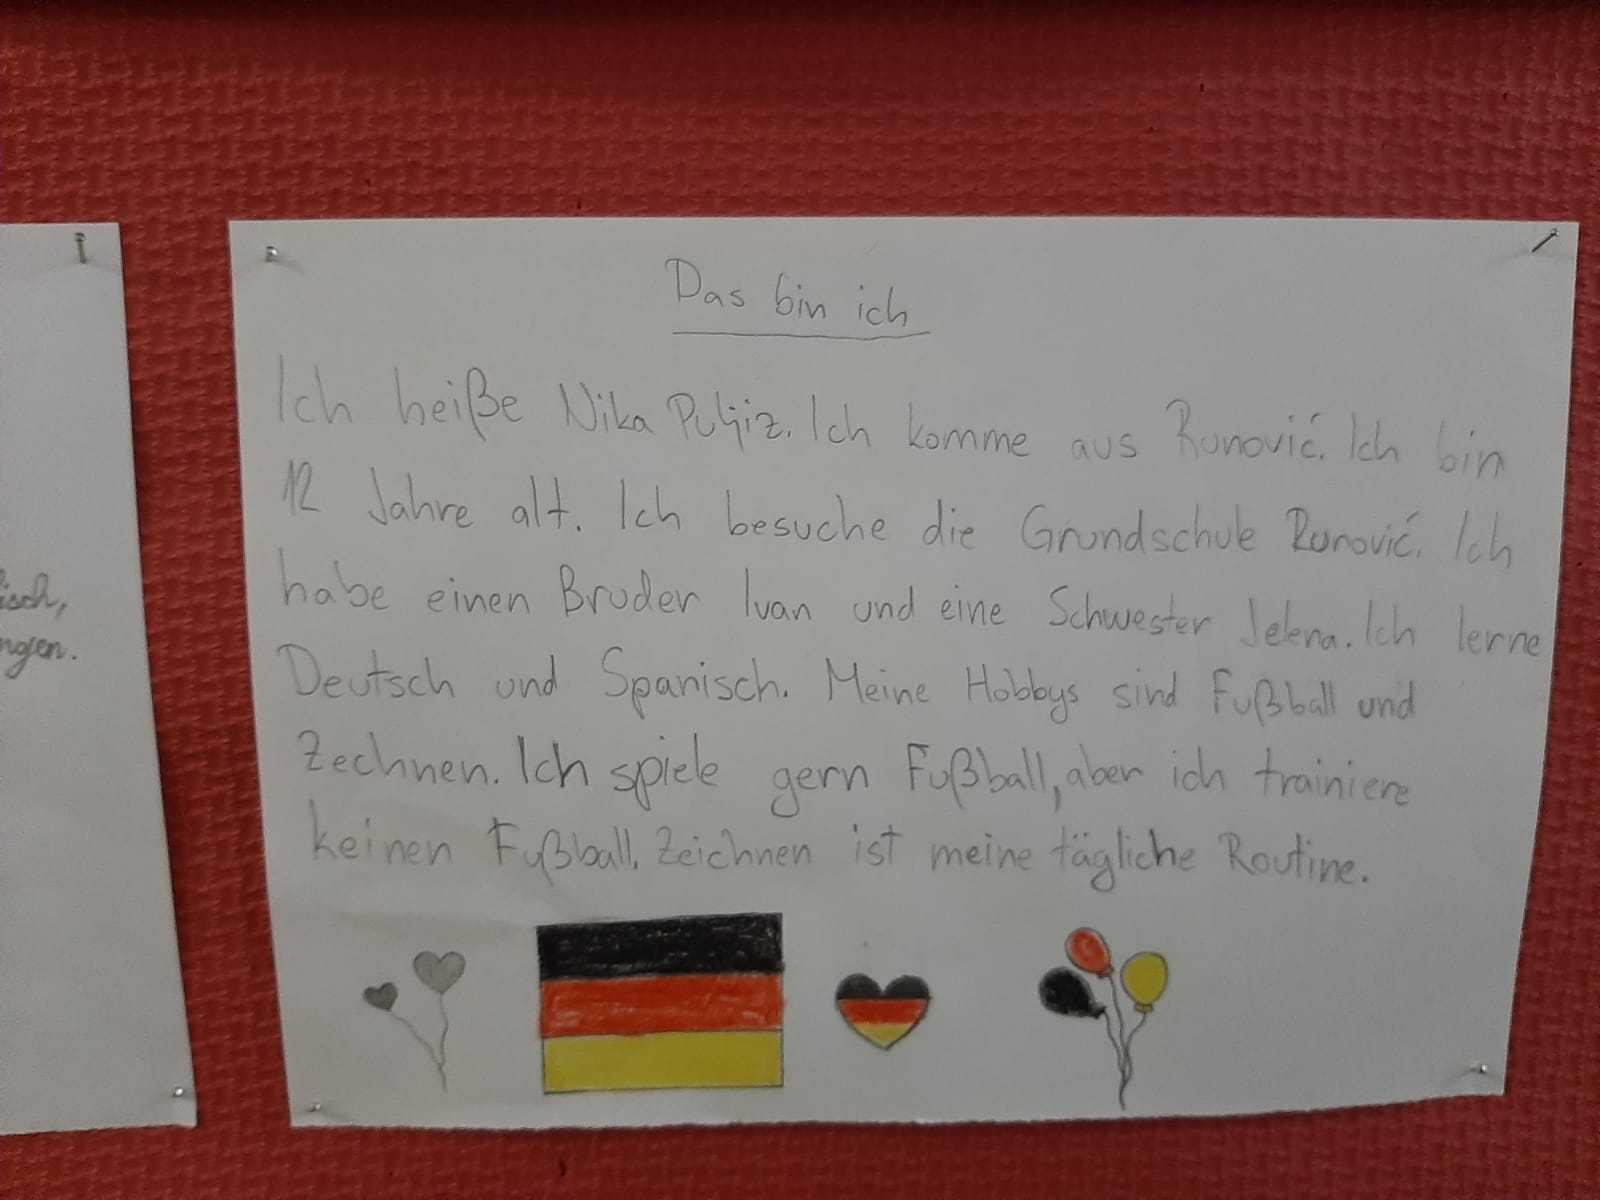 Das bin ich
Ich heiße Nika Puljiz. Ich komme aus Runović. Ich bin
12 Jahre alt. Ich besuche die Grundschule Runović. Ich
habe einen Bruder Ivan und eine Schwester Jelena. Ich lerne
Deutsch und Spanisch. Meine Hobbys sind Fußball und
Zechnen. Ich spiele gern Fußball, aber ich trainiere
keinen Fußball. Zeichnen ist meine tägliche Routine.